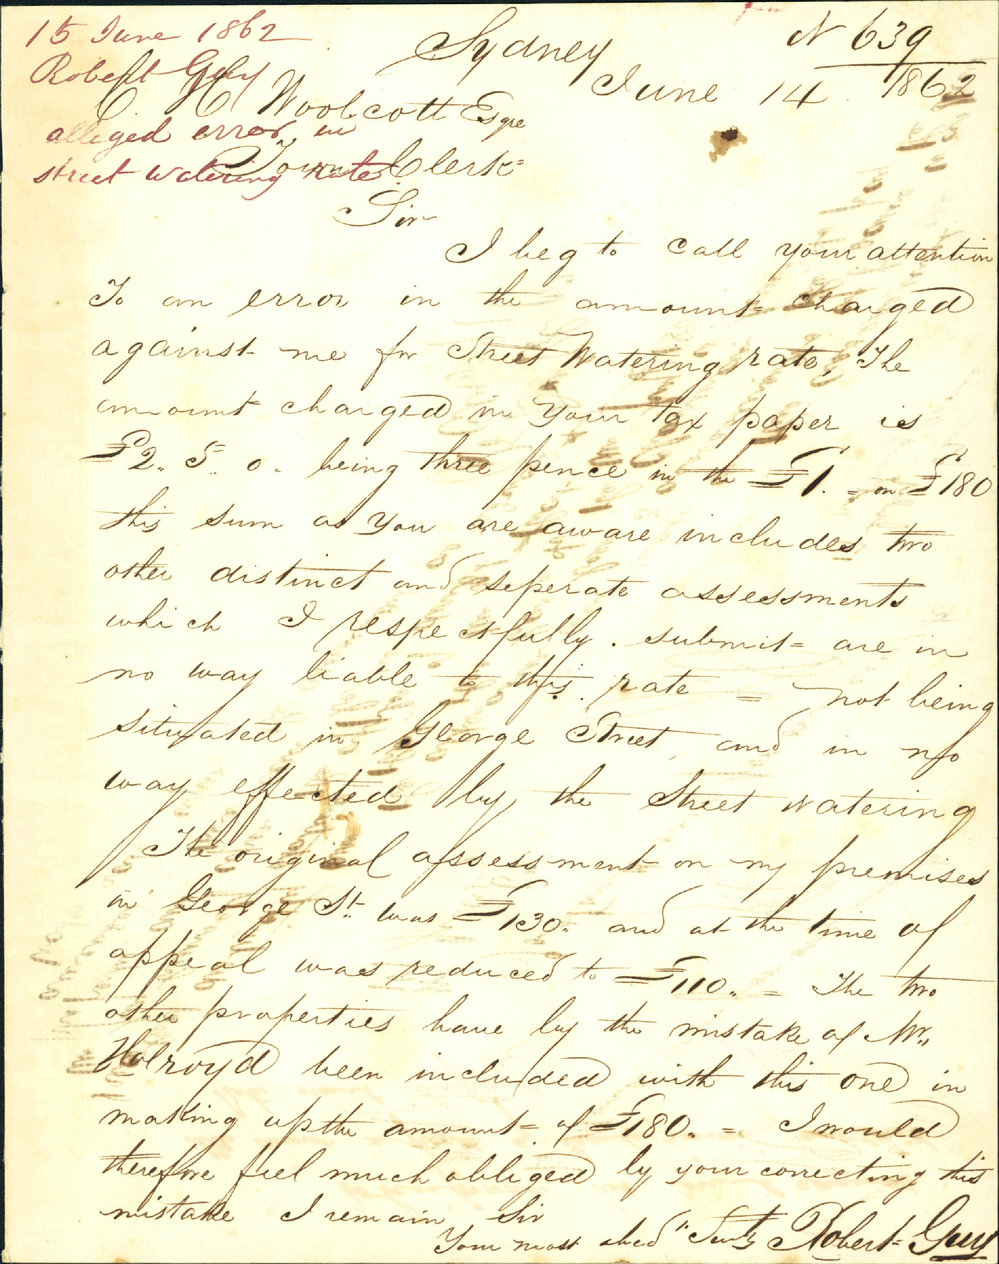 15 June 1862
Robert Guy
alleged error in
street watering rate
Nº 639
1862
Sydney
June 14
C H Woolcott Esqre
Town Clerk
Sir
I beg to call your attention
To an error in the amount charged
against me for Street Watering rate, The
amount charged in your tax paper is
£2. 5. 0. being three pence in the £1. - on £180
this sum as you are aware includes two
other distinct and seperate assessments
which I respectfully. submit = are in
no way liable to this rate = not being
situated in George Street, and in no
way effected by the Street Watering
The original assessment on my premises
in George St. was £130. and at the time of
appeal was reduced to £110. = The two
other properties have by the mistake of Mr.
Holroyd been included with this one in
making up the amount = of £180. = I would
therefore feel much obliged by your correcting this
mistake I remain Sir
Your most obed Servt Robert Guy